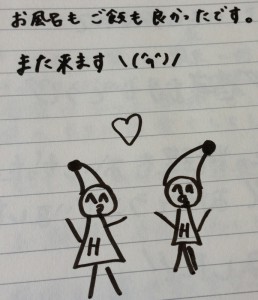 お風呂も ご飯も 良かったです。
また来ます \(^q^)/
H
H